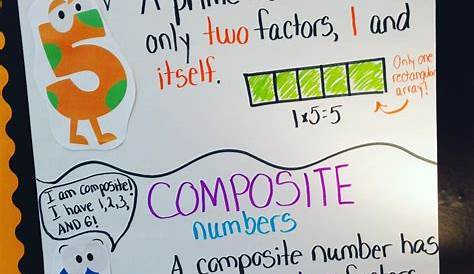 A prime
only two factors, 1 and
itself.
5
Only one
rectangular
array!
1x5=5
I am composite!
I have 1,2,3,
AND 6!
COMPOSITE
numbers
A composite number has